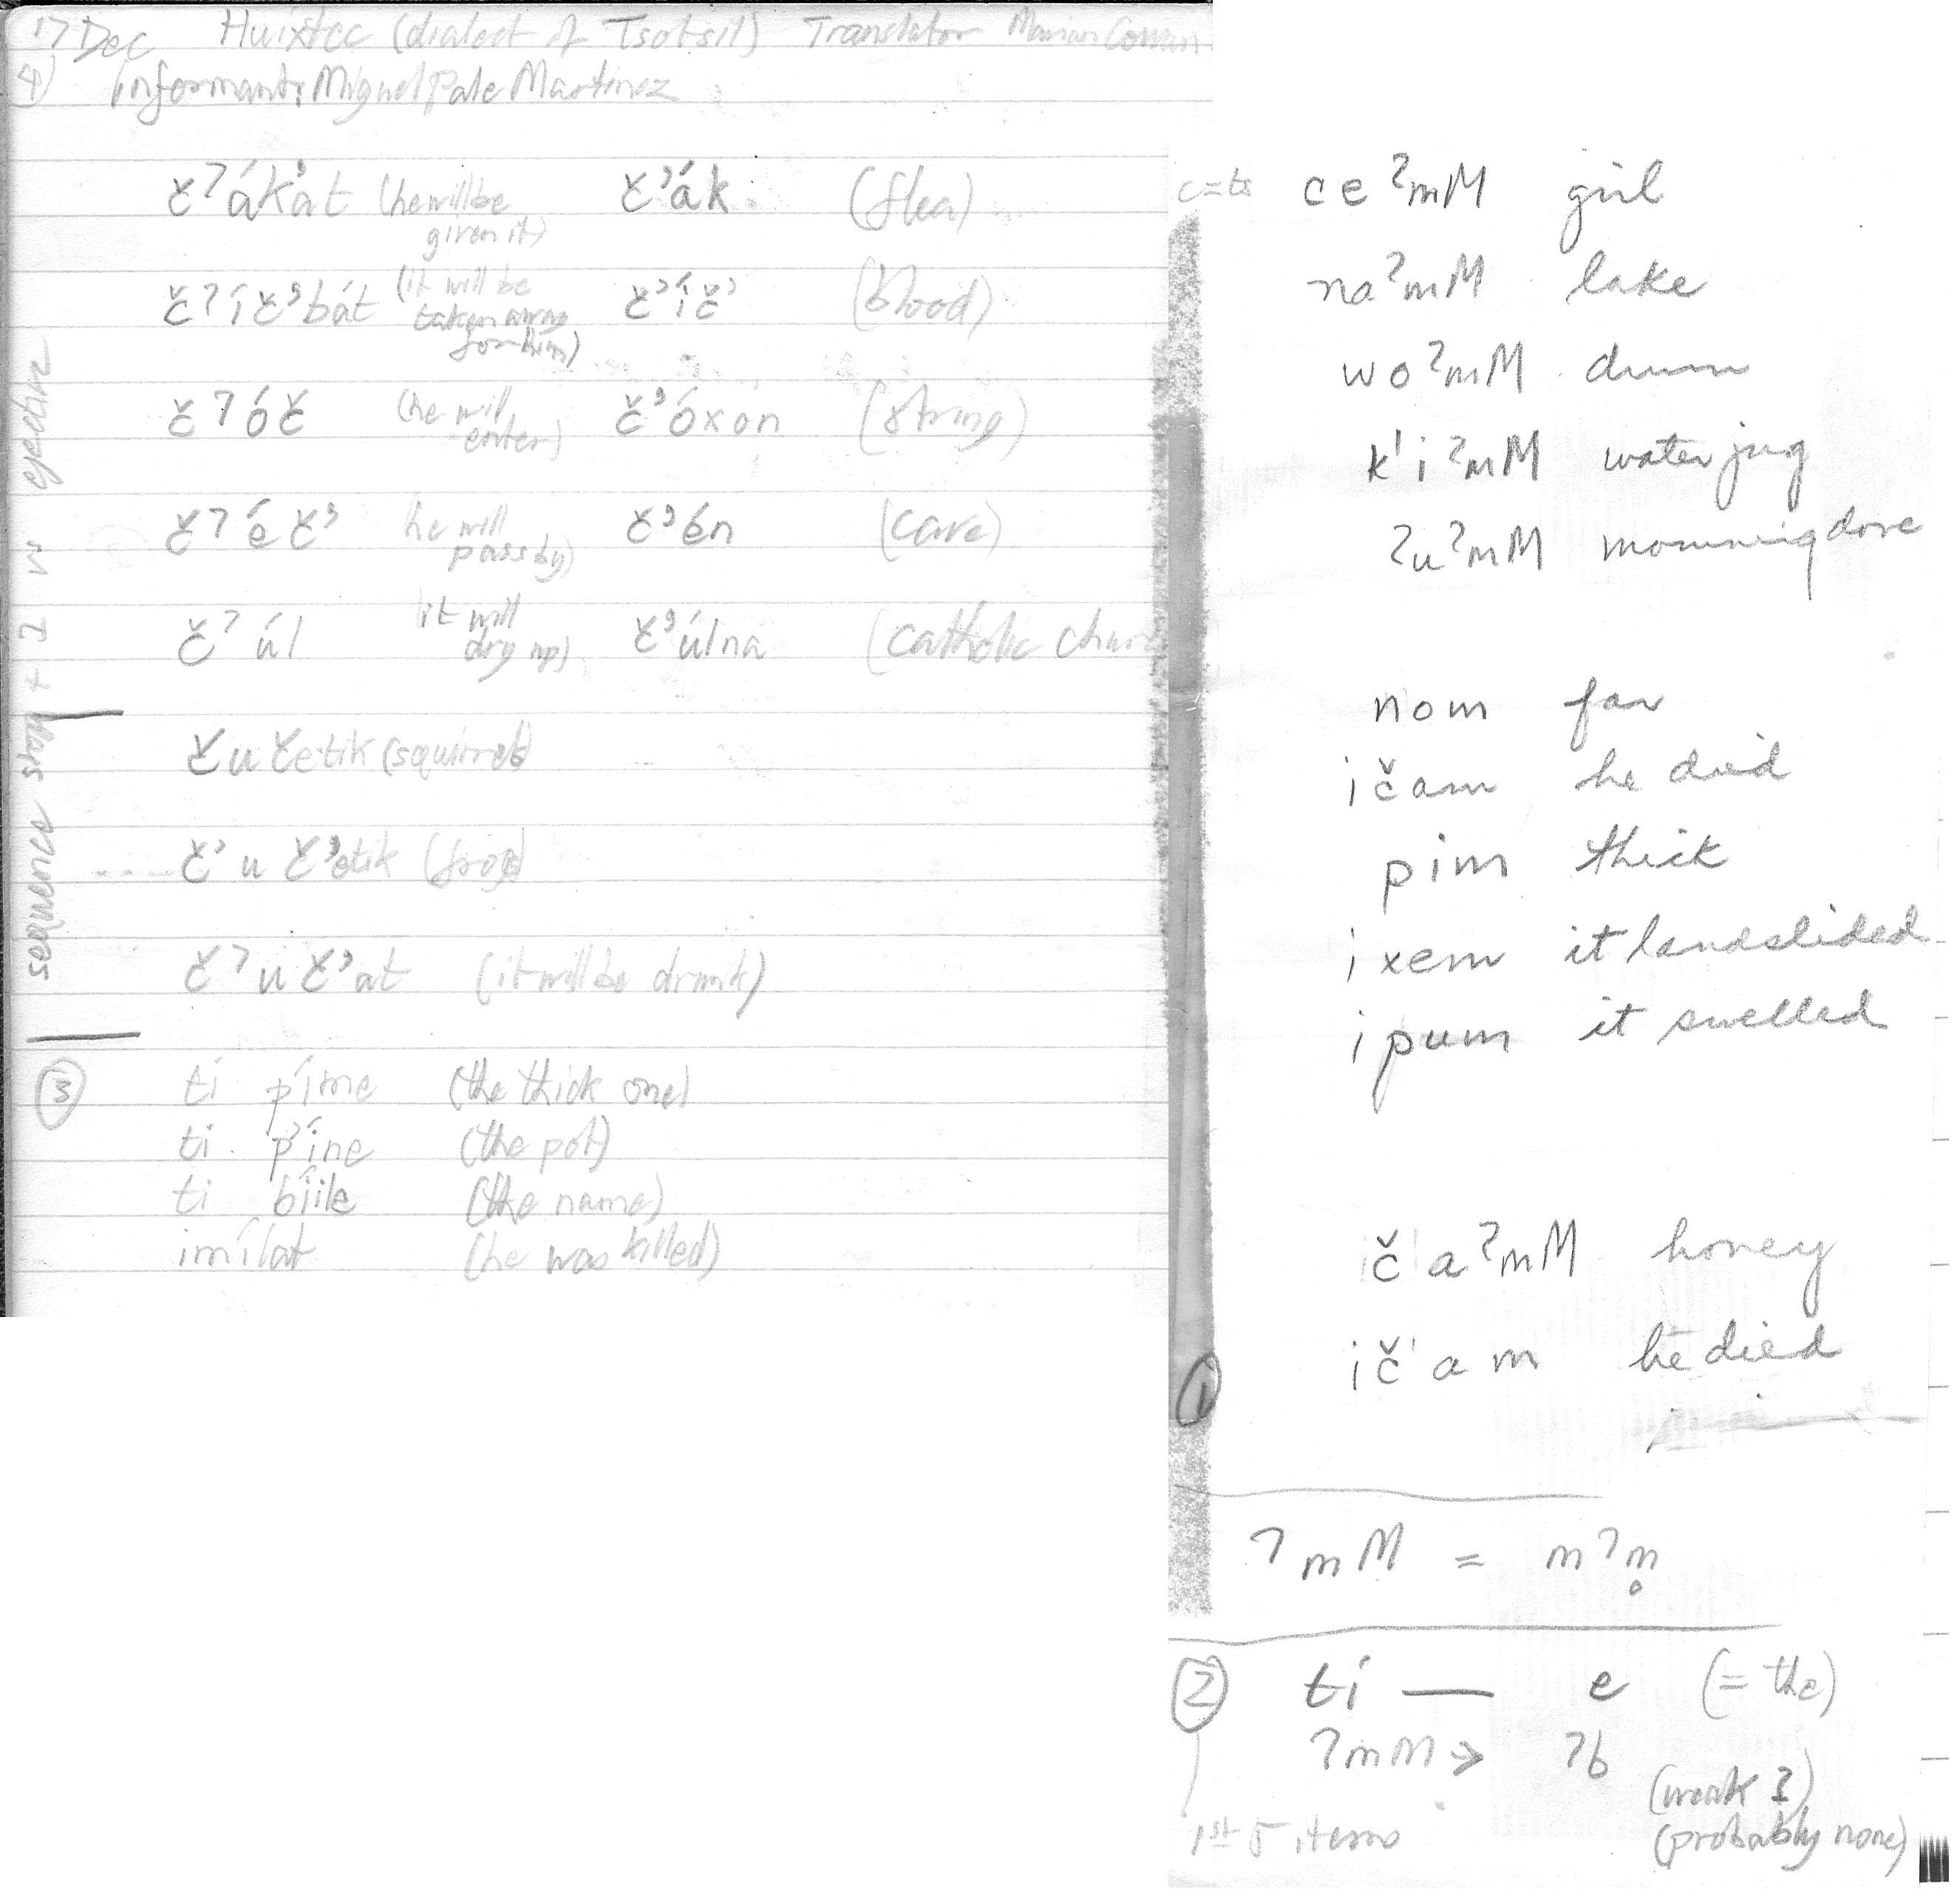 17 Dec Huixtec (dialect of Tsotsil) Translator Marian Cowan
4) informant: Miguel Pale Martinez
č ʔ ák'at (he will be given it) č'ák (flea)
č ʔ íč'bát (it will be taken away for him) č'íč' (blood)
č ʔ óč (he will enter) č'óxon (string)
č ʔ éč' he will pass by) č'én (cave)
č ʔ úl it will dry up) č'úlna (catholic chur
sequence stop + ʔ vs ejective
čučetik (squirrels)
č'uč'etik (frogs)
č ʔ uč'at (it will be drunk)
3
ti píme (the thick one)
ti píne (the pot)
ti bíile (the name)
imílat (he was killed)
c=ts ceʔmM girl
naʔmM lake
woʔmM drum
k'iʔmM water jug
ʔuʔmM mourning dove
nom far
ičam he died
pim thick
ixem it landslided
ipum it swelled
čaʔmM honey
1
ič'am he died
ʔmM = mʔm̥
2 ti — e (= the)
ʔmM > ʔb
(weak ʔ)
1st 5 items (probably none)